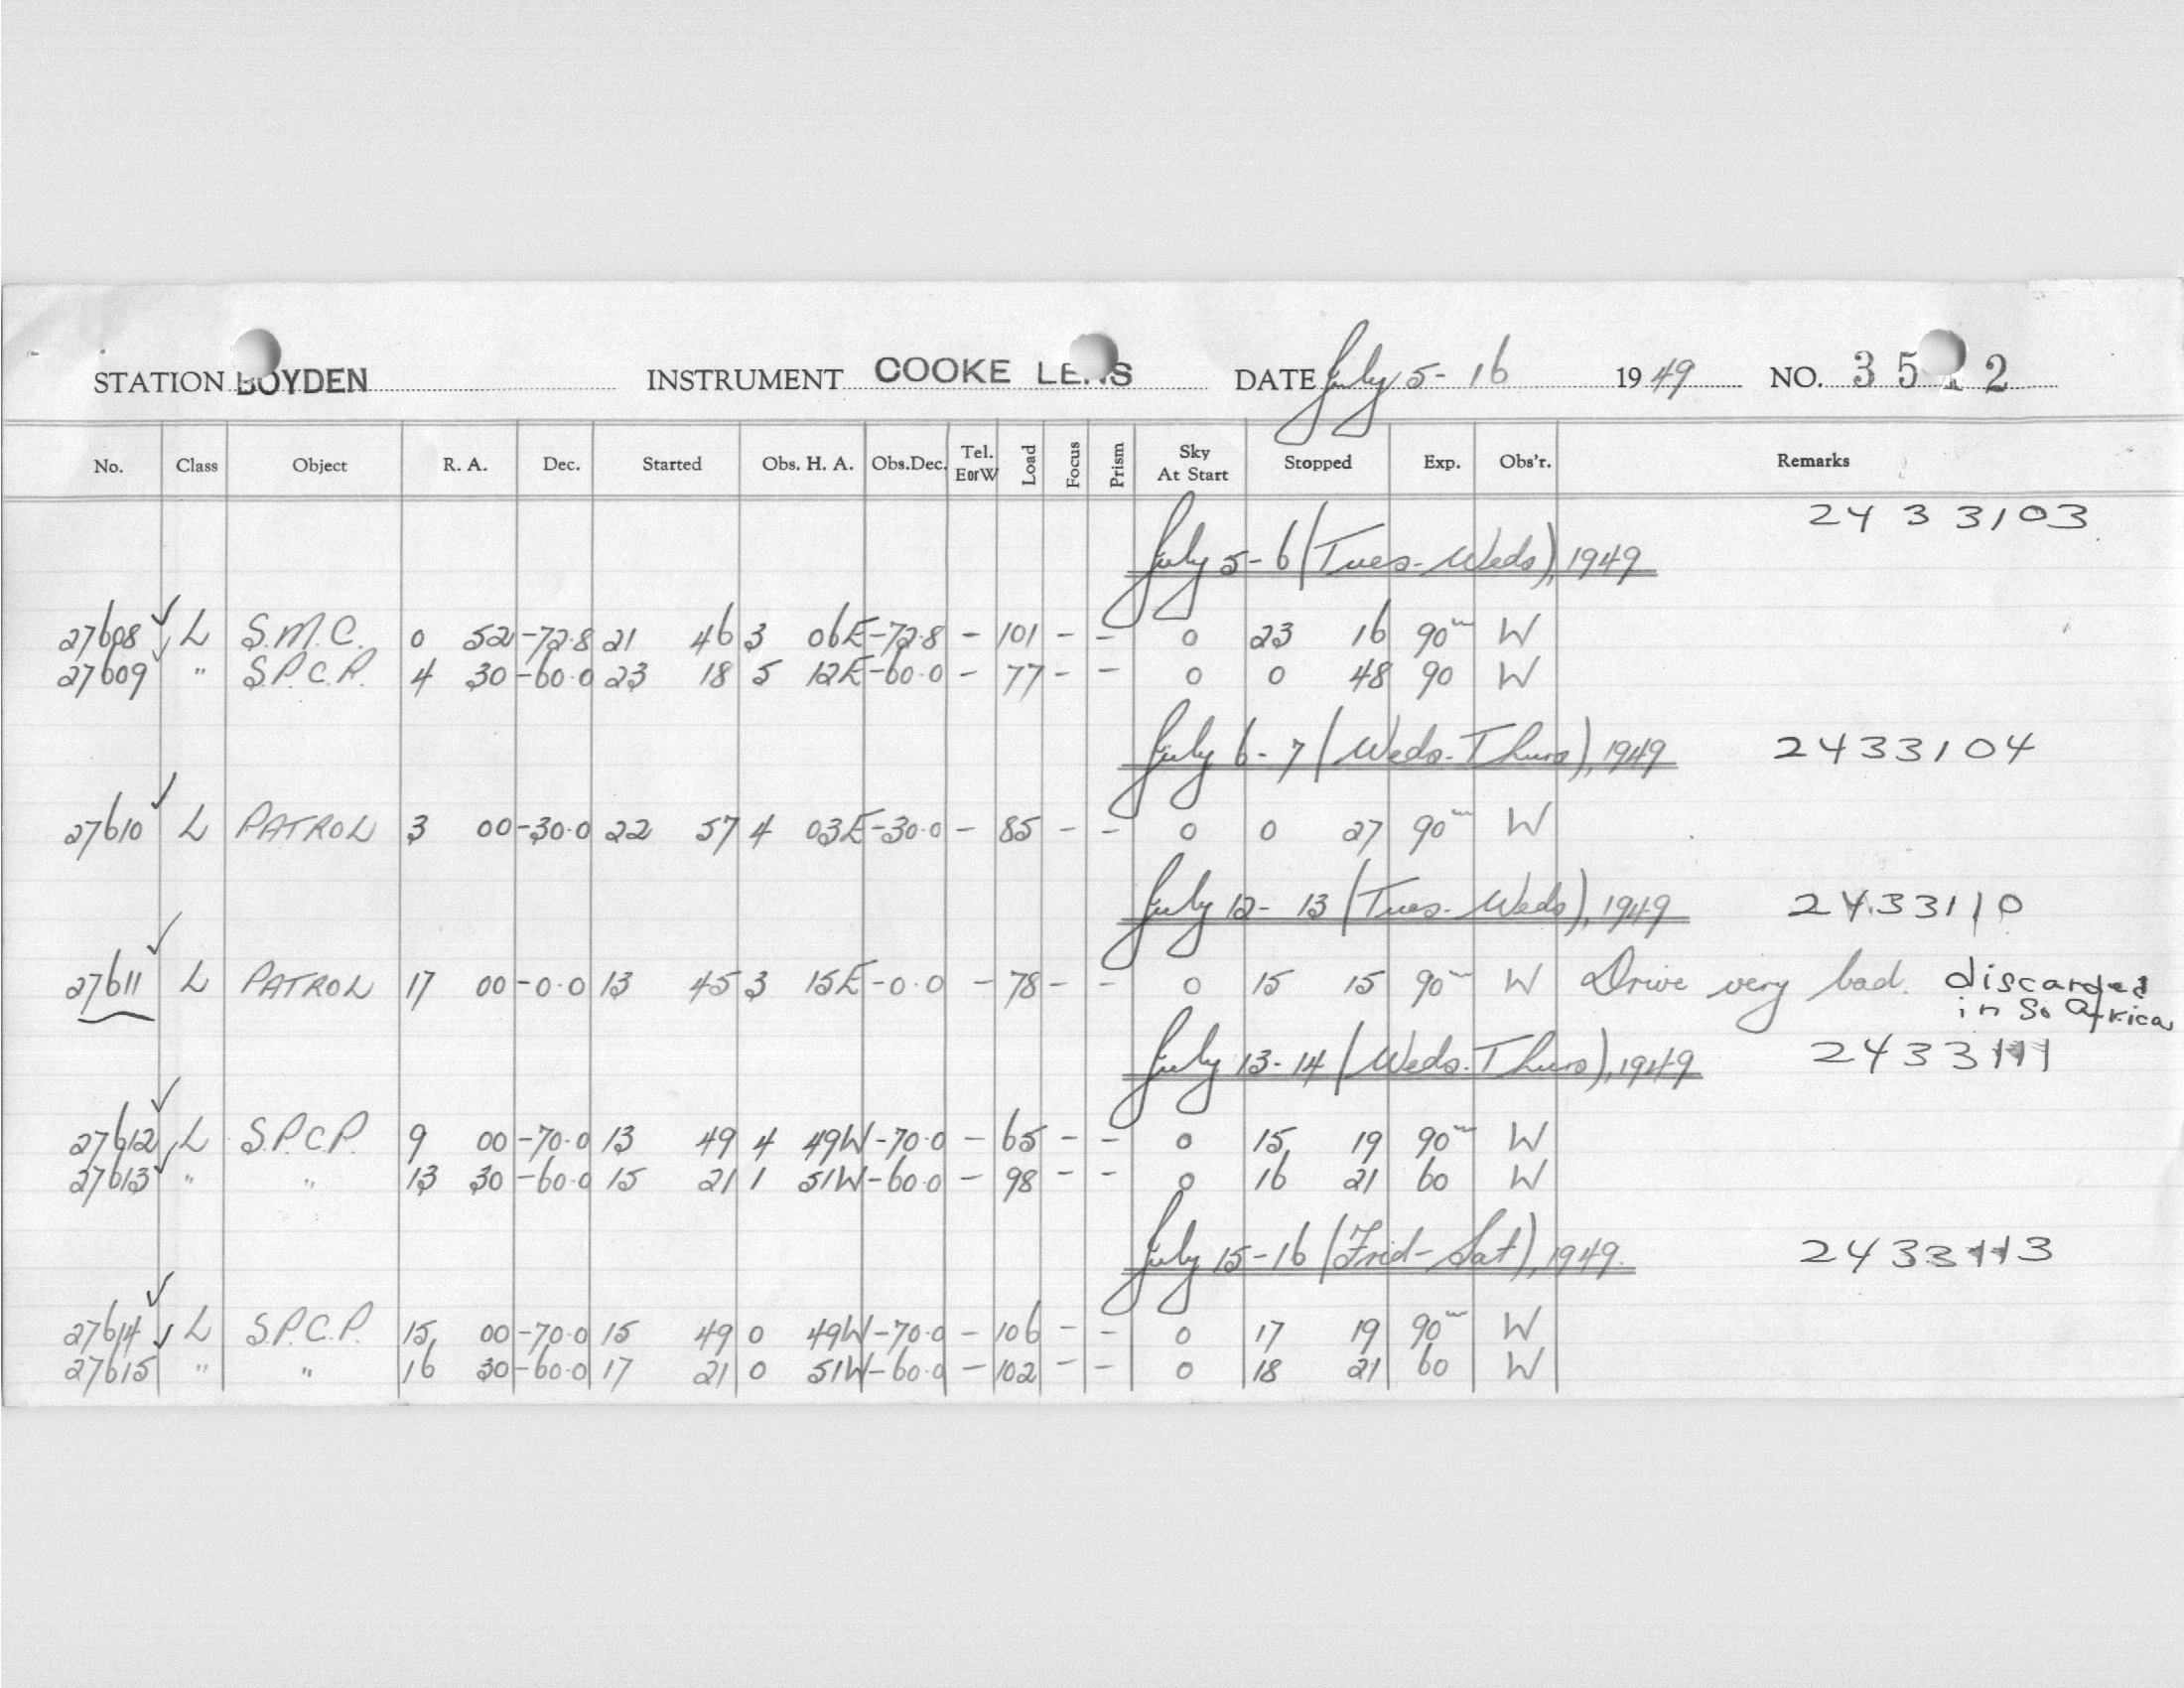 STATION BOYDEN INSTRUMENT COOKE LENS DATE July 5-16 1949 NO. 35 2
No. Class Object R. A. Dec. Started Obs. H. A. Obs.Dec. Tel. EorW Load Focus Prism Sky At Start Stopped Exp. Obs'r. Remarks
2433103
July 5-6 (Tues-Weds), 1949
27608 L S.M.C. 0 52 -72.8 21 46 3 06E -72.8 - 101 - - 0 23 16 90m W
27609 " S.P.C.P. 4 30 -60.0 23 18 5 12E -60.0 - 77 - - 0 0 48 90 W
July 6-7 (Weds-Thurs), 1949 2433104
27610 L PATROL 3 00 -30.0 22 57 4 03E -30.0 - 85 - - 0 0 27 90m W
July 12-13 (Tues-Weds), 1949 2433110
27611 L PATROL 17 00 -0.0 13 45 3 15E -0.0 - 78 - - 0 15 15 90m W Drive very bad. discarded
in So Africa
July 13-14 (Weds-Thurs), 1949 2433111
27612 L S.P.C.P. 9 00 -70.0 13 49 4 49W -70.0 - 65 - - 0 15 19 90m W
27613 " " 13 30 -60.0 15 21 1 51W -60.0 - 98 - - 0 16 21 60 W
July 15-16 (Frid-Sat), 1949. 2433113
27614 L S.P.C.P. 15 00 -70.0 15 49 0 49W -70.0 - 106 - - 0 17 19 90m W
27615 " " 16 30 -60.0 17 21 0 51W -60.0 - 102 - - 0 18 21 60 W